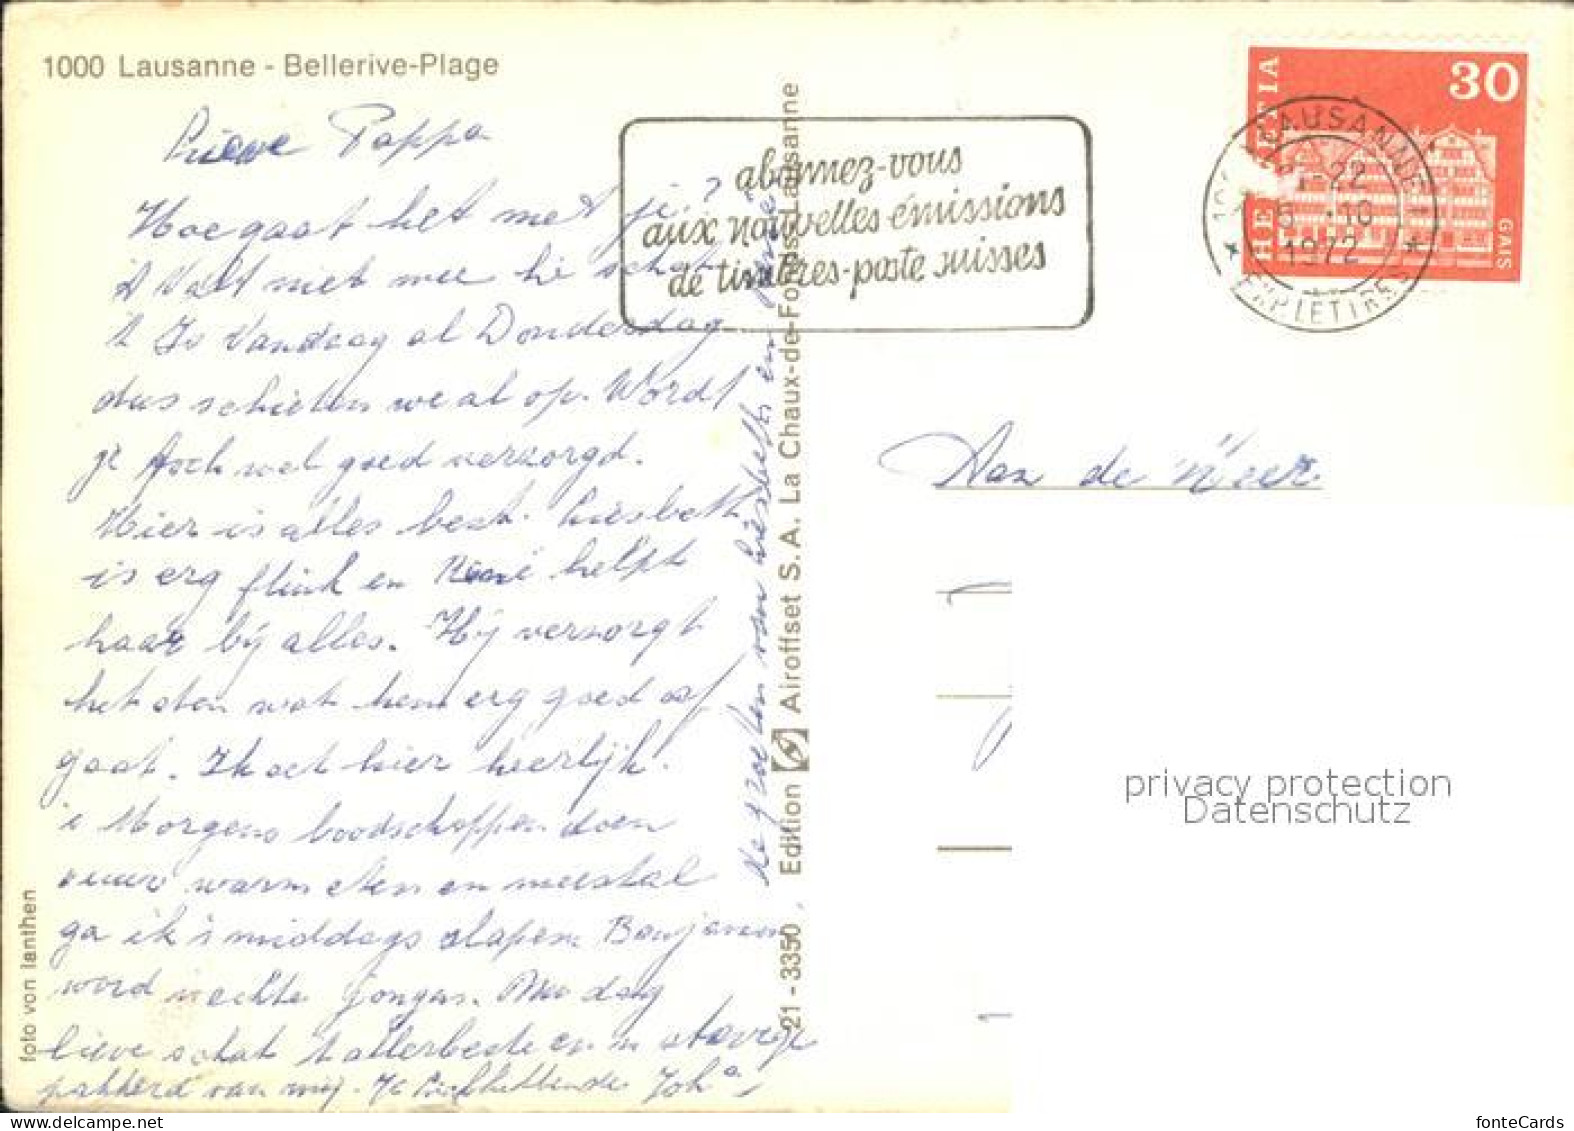 1000 Lausanne - Bellerive-Plage
Lieve Pappa
Hoe gaat het met je?
't Valt niet mee hé schat
't Is Vandaag al Donderdag
dus schieten we al op. Wordt
je toch wel goed verzorgd.
Hier is alles best. Liesbeth
is erg flink en René helpt
haar bij alles. Hij verzorgt
het eten wat hem erg goed af
gaat. Ik eet hier heerlijk.
's Morgens boodschappen doen
warm eten en meestal
ga ik 's middags slapen. Benjamin
word echte jongen. Nu dag
lieve schat 't allerbeste en 'n stevige
pakkerd van mij. Je Liefhebbende Joh
de groeten van Liesbeth en
foto von Ianthen
21 - 3350 Edition Airoffset S.A. La Chaux-de-Fonds-Lausanne
abonnez-vous
aux nouvelles émissions
de timbres-poste suisses
HELVETIA
30
GAIS
LAUSANNE 1
-22
-10
1972
EXP LETTRES
Aan de Heer
privacy protection
Datenschutz
fonteCards